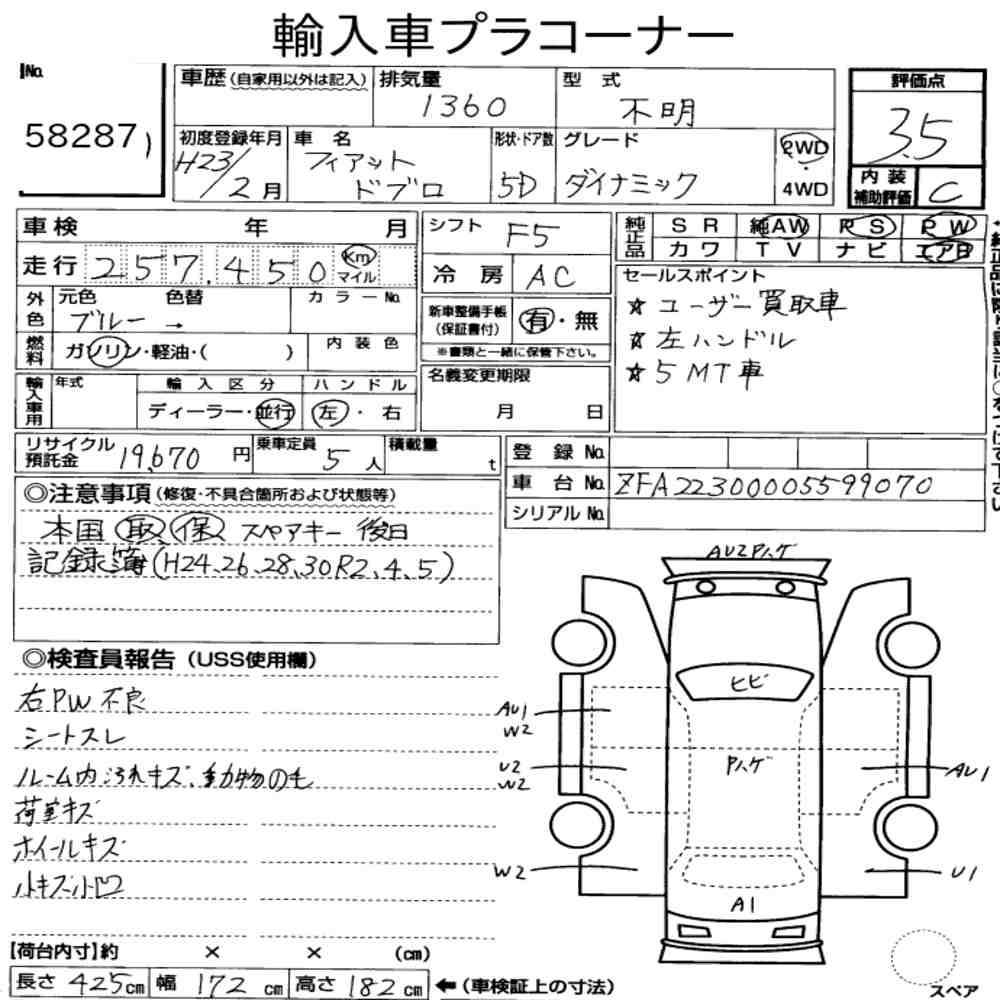 輸入車プラコーナー
No.
58287
車歴(自家用以外は記入)
排気量
1360
型式
不明
評価点
3.5
初度登録年月
H23/2月
車名
フィアット
ドブロ
形状・ドア数
5D
グレード
ダイナミック
2WD
4WD
内装
補助評価
C
車検 年 月
シフト F5
純正品
SR 純AW PS PW
カワ TV ナビ エアB
走行 257,450 Km マイル
冷房 AC
セールスポイント
☆ユーザー買取車
☆左ハンドル
☆5MT車
外色
元色 色替 カラーNo.
ブルー →
新車整備手帳
(保証書付)
有・無
※書類と一緒に保管下さい。
燃料
ガソリン・軽油・( )
内装色
輸入車用
年式
輸入区分
ディーラー・並行
ハンドル
左・右
名義変更期限
月 日
リサイクル
預託金 19,670 円
乗車定員 5人
積載量 t
登録No.
車台No. ZFA22300005599070
シリアルNo.
◎注意事項(修復・不具合箇所および状態等)
本国 取 保 スペアキー 後日
記録簿(H24.26.28.30R2.4.5)
◎検査員報告(USS使用欄)
右PW不良
シートスレ
ルーム内汚れキズ、動物の毛
荷室キズ
ホイールキズ
小キズ小凹
AU2Pハゲ
ヒビ
AU1
W2
U2
W2
Pハゲ
AU1
W2
U1
A1
スペア
【荷台内寸】約 × × (cm)
長さ 425cm 幅 172cm 高さ 182cm ←(車検証上の寸法)